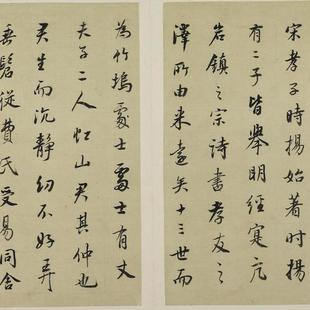 宋孝子時揚始著時揚
有二子皆舉明經寔亢
岩鎮之宗詩書孝友之
澤所由來遠矣十三世而
為竹塢處士處士有丈
夫子二人虹山君其仲也
君生而沉静幼不好弄
垂髫從費氏受易同舍